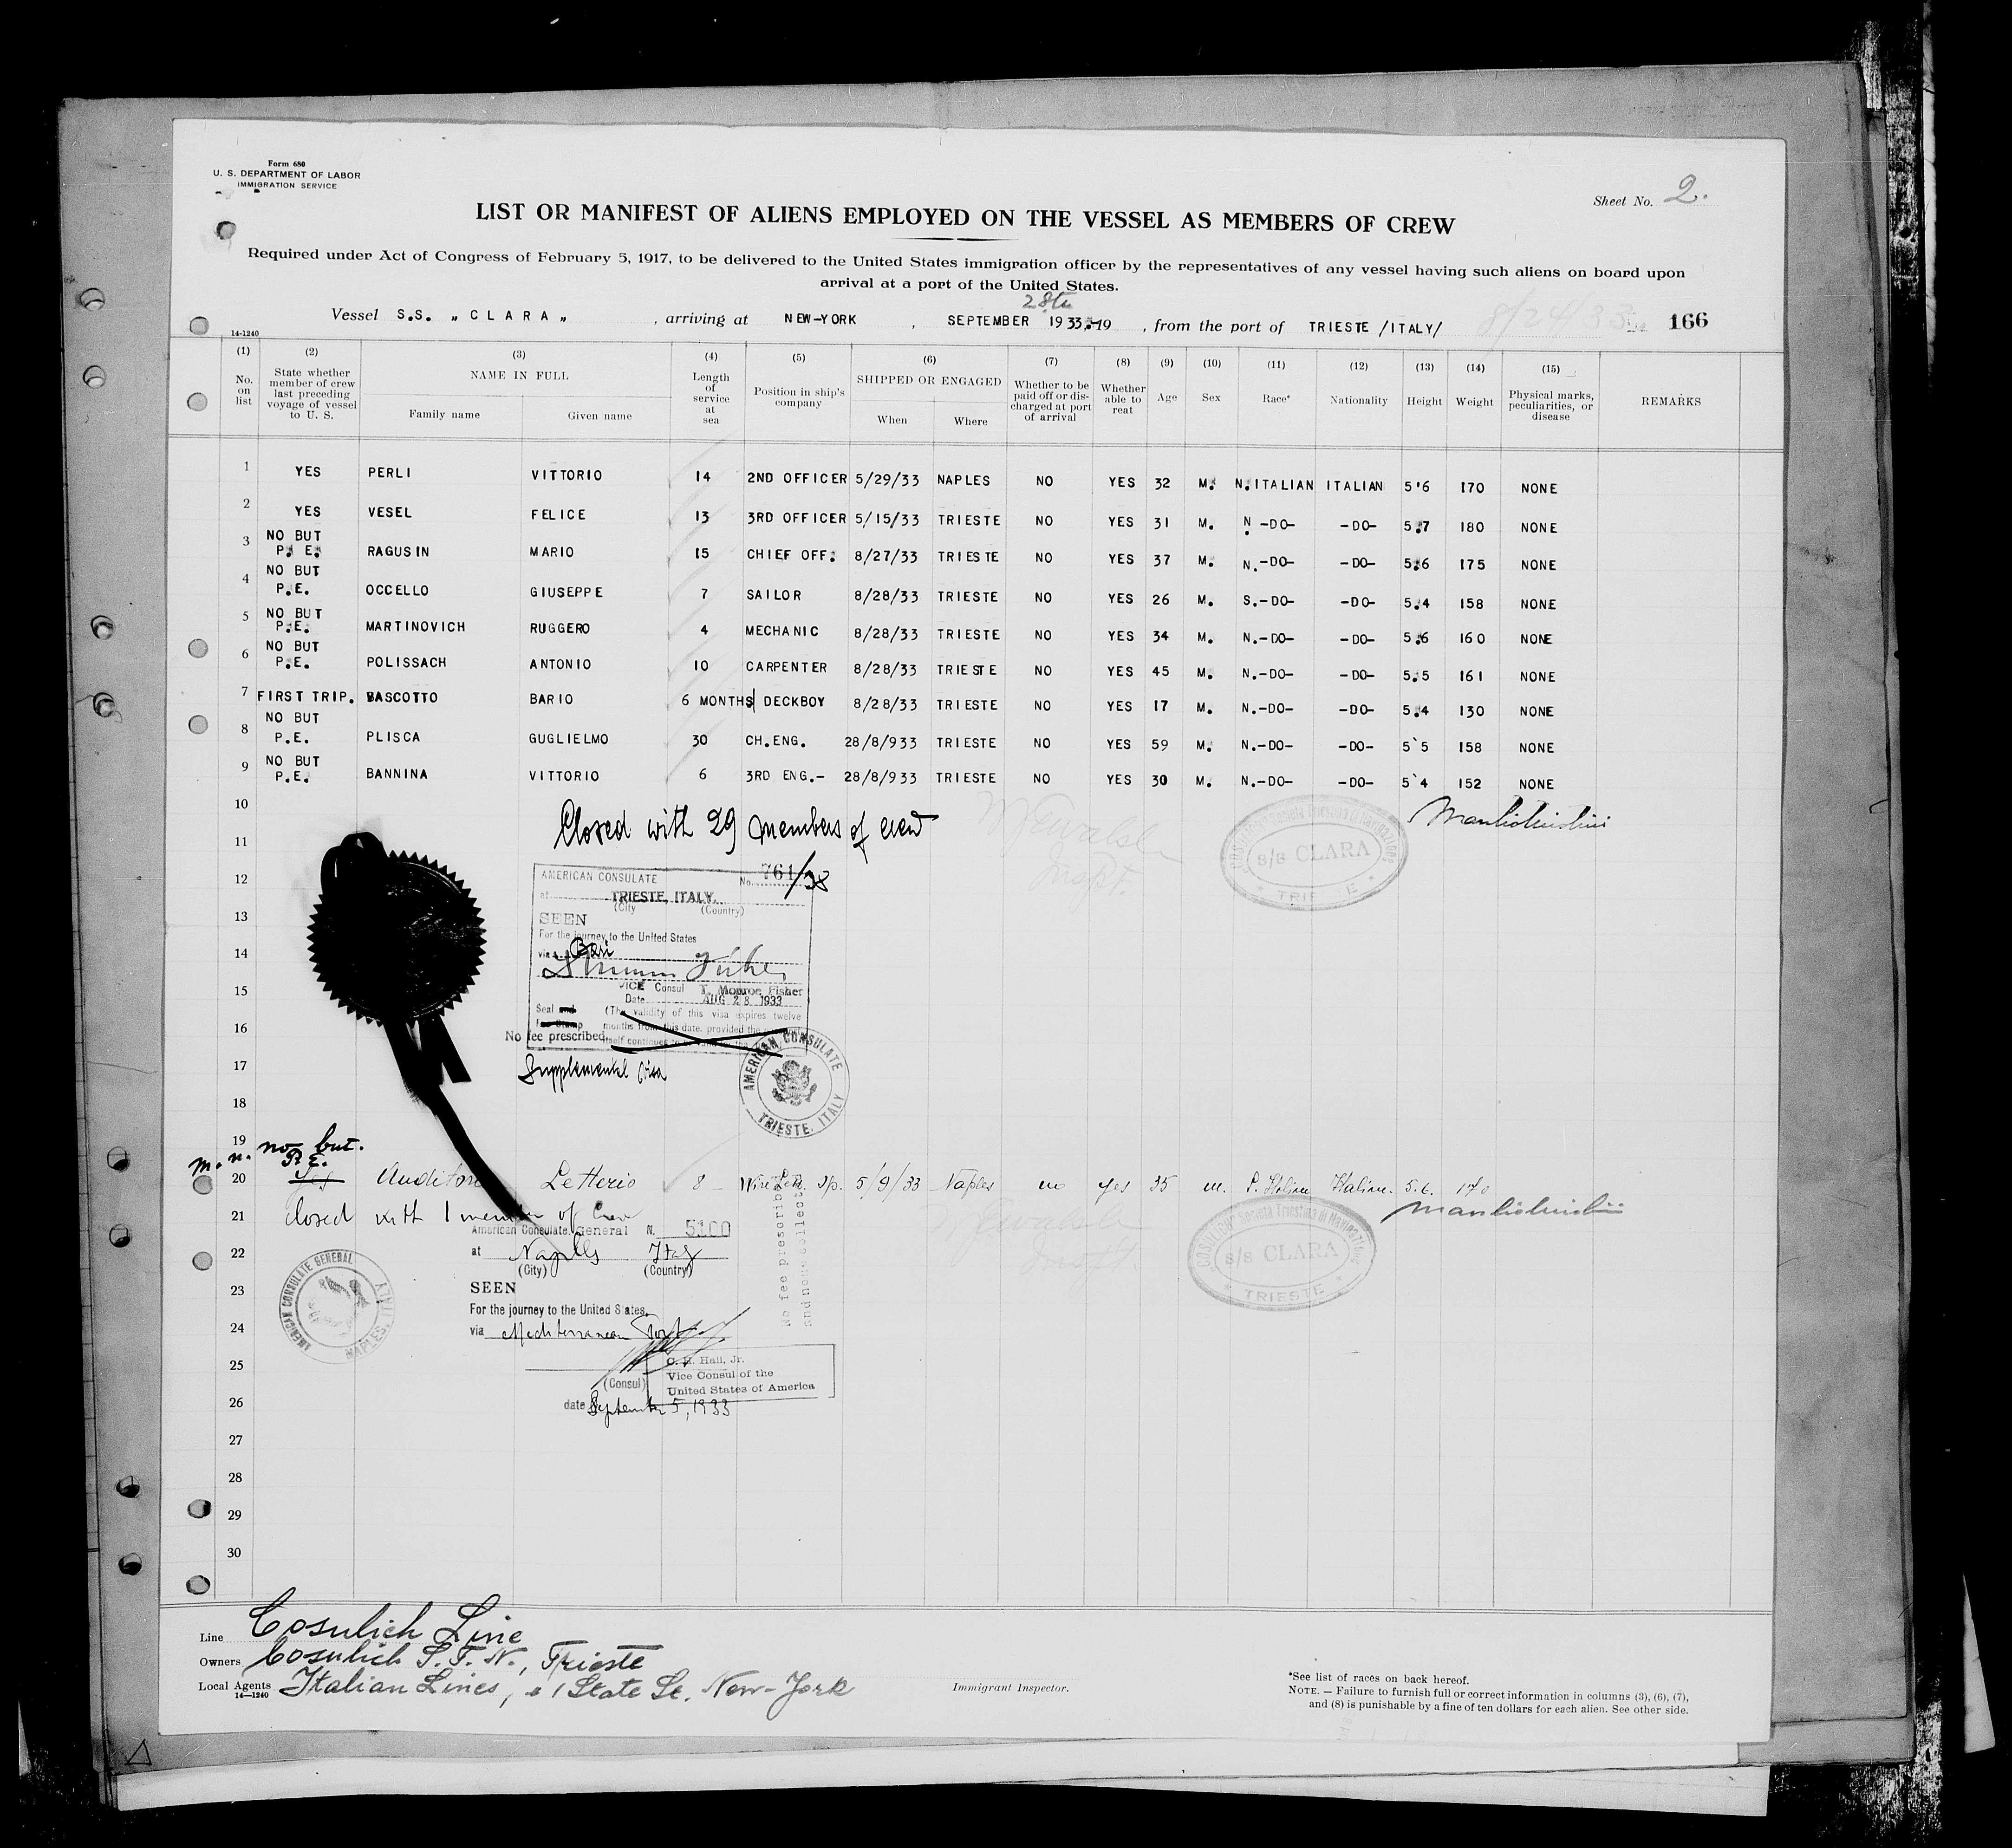 Form 680
U. S. DEPARTMENT OF LABOR
IMMIGRATION SERVICE
Sheet No. 2.
LIST OR MANIFEST OF ALIENS EMPLOYED ON THE VESSEL AS MEMBERS OF CREW
Required under Act of Congress of February 5, 1917, to be delivered to the United States immigration officer by the representatives of any vessel having such aliens on board upon
arrival at a port of the United States.
28th
Vessel S.S. „ CLARA „ , arriving at NEW-YORK , SEPTEMBER 1933.-19 , from the port of TRIESTE /ITALY/ 8/24/33 166
14-1240
(1) (2) (3) (4) (5) (6) (7) (8) (9) (10) (11) (12) (13) (14) (15)
No. on list | State whether member of crew last preceding voyage of vessel to U. S. | NAME IN FULL | Family name | Given name | Length of service at sea | Position in ship's company | SHIPPED OR ENGAGED | When | Where | Whether to be paid off or discharged at port of arrival | Whether able to reat | Age | Sex | Race* | Nationality | Height | Weight | Physical marks, peculiarities, or disease | REMARKS
1 YES PERLI VITTORIO 14 2ND OFFICER 5/29/33 NAPLES NO YES 32 M. N.ITALIAN ITALIAN 5'6 170 NONE
2 YES VESEL FELICE 13 3RD OFFICER 5/15/33 TRIESTE NO YES 31 M. N.-DO- -DO- 5.7 180 NONE
3 NO BUT P. E. RAGUSIN MARIO 15 CHIEF OFF. 8/27/33 TRIESTE NO YES 37 M. N.-DO- -DO- 5.6 175 NONE
4 NO BUT P.E. OCCELLO GIUSEPPE 7 SAILOR 8/28/33 TRIESTE NO YES 26 M. S.-DO- -DO- 5.4 158 NONE
5 NO BUT P.E. MARTINOVICH RUGGERO 4 MECHANIC 8/28/33 TRIESTE NO YES 34 M. N.-DO- -DO- 5.6 160 NONE
6 NO BUT P.E. POLISSACH ANTONIO 10 CARPENTER 8/28/33 TRIESTE NO YES 45 M. N.-DO- -DO- 5.5 161 NONE
7 FIRST TRIP. BASCOTTO BARIO 6 MONTHS DECKBOY 8/28/33 TRIESTE NO YES 17 M. N.-DO- -DO- 5.4 130 NONE
8 NO BUT P.E. PLISCA GUGLIELMO 30 CH.ENG. 28/8/933 TRIESTE NO YES 59 M. N.-DO- -DO- 5`5 158 NONE
9 NO BUT P.E. BANNINA VITTORIO 6 3RD ENG.- 28/8/933 TRIESTE NO YES 30 M. N.-DO- -DO- 5`4 152 NONE
10
Closed with 29 members of crew
11
s/s CLARA
TRIESTE
12
AMERICAN CONSULATE No. 761/38
at TRIESTE, ITALY.
(City (Country)
13
SEEN
For the journey to the United States
14
via Bari
15
VICE Consul T. Monroe Fisher
Date AUG 28 1933
Seal and (The validity of this visa expires twelve
16
months from this date, provided the
No fee prescribed itself continues to
17
Supplemental Visa
AMERICAN CONSULATE
TRIESTE, ITALY
18
19
m. n. no but. P.E.
20 yes Auditore Letterio 8 - Wireless op. 5/9/33 Naples no yes 35 m. S. Italian Italian. 5.6. 170
21 closed with 1 member of Crew
American Consulate General N. 5100
22
at Naples Italy
(City) (Country)
s/s CLARA
TRIESTE
AMERICAN CONSULATE GENERAL
NAPLES, ITALY
23
SEEN
For the journey to the United States.
No fee prescribed
and none collected
24
via Mediterranean Port
25
C. H. Hall, Jr.
Vice Consul of the
United States of America
(Consul)
26
date September 5, 1933
27
28
29
30
Line Cosulich Line
Owners Cosulich S.T.N., Trieste
Local Agents Italian Lines, 1 State St. New-York
14-1240
Immigrant Inspector.
*See list of races on back hereof.
NOTE. — Failure to furnish full or correct information in columns (3), (6), (7),
and (8) is punishable by a fine of ten dollars for each alien. See other side.